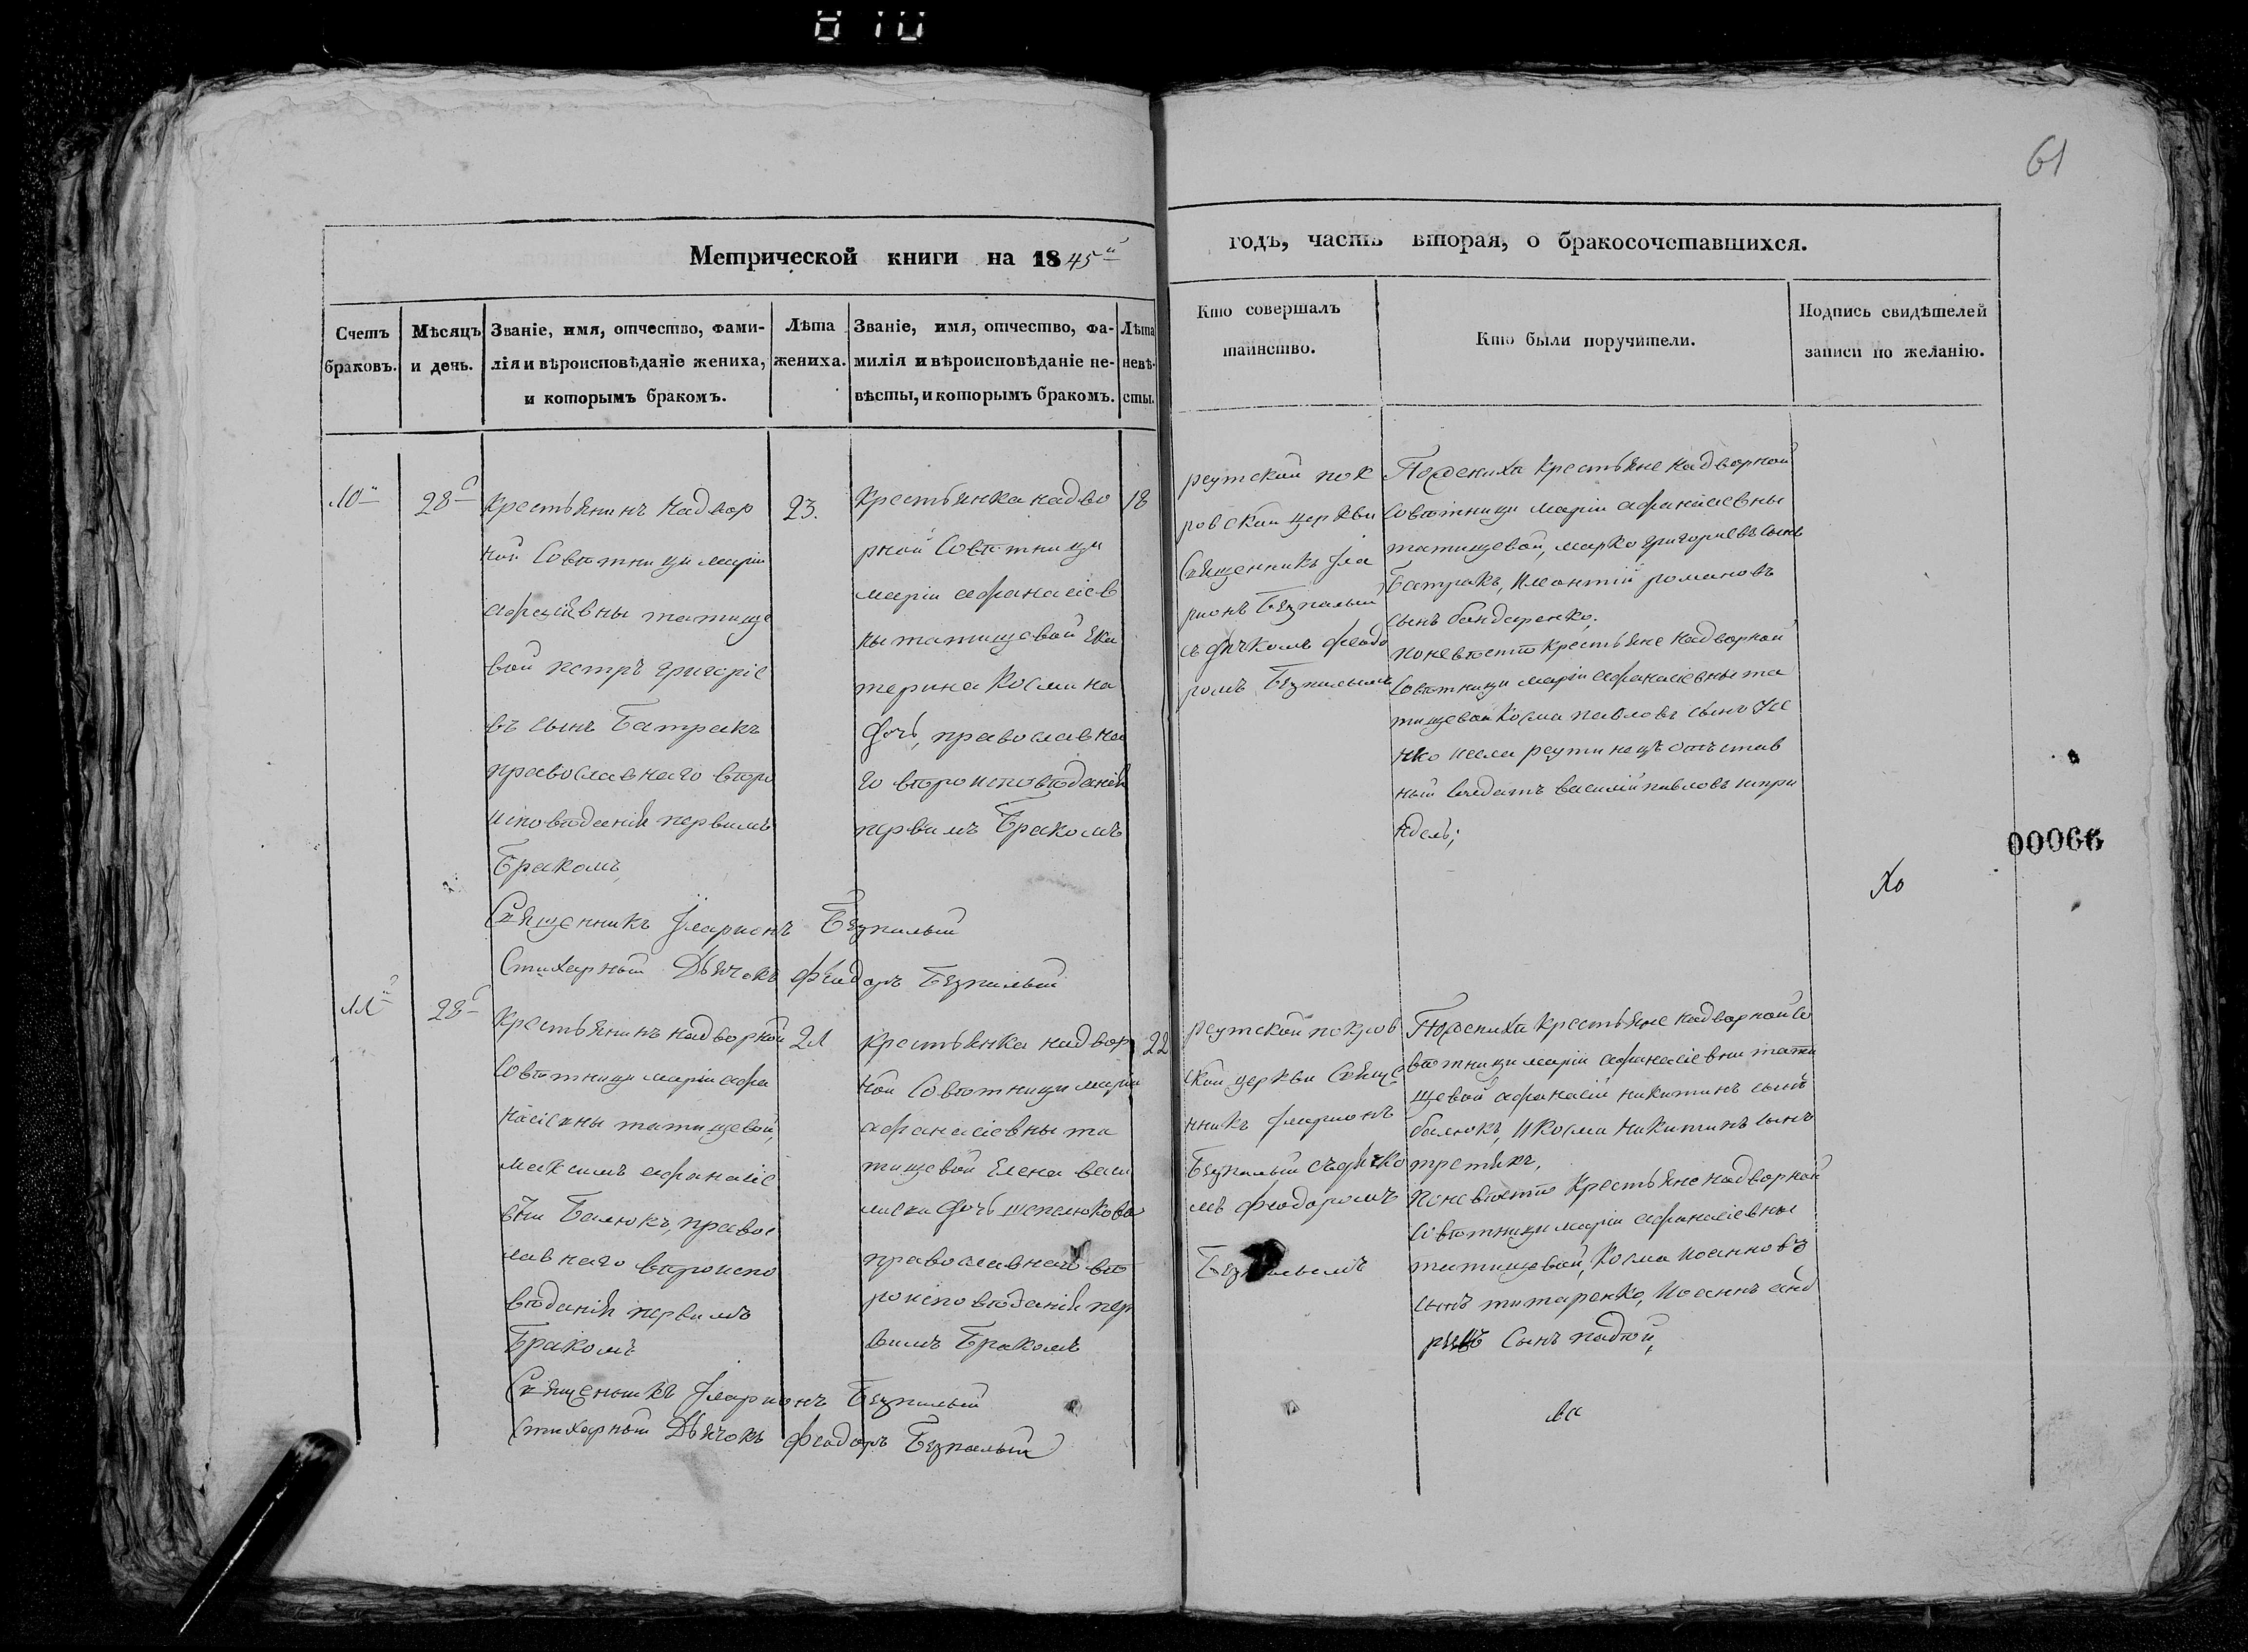 810
61
Метрической книги на 1845й
годъ, часть вторая, о бракосочетавшихся.
Счетъ
браковъ.
Мѣсяцъ
и день.
Званіе, имя, отчество, фами-
лія и вѣроисповѣданіе жениха,
и которымъ бракомъ.
Лѣта
жениха.
Званіе, имя, отчество, фа-
милія и вѣроисповѣданіе не-
вѣсты, и которымъ бракомъ.
Лѣта
невѣ-
сты.
Кто совершалъ
таинство.
Кто были поручители.
Подпись свидѣтелей
записи по желанію.
10й
28
крестьянинъ надвор
ной Совѣтници маріи
татище
вой петръ григоріе
въ сынъ Батракъ
православнаго вѣро
исповѣданія первимъ
Бракомъ,
23.
крестьянка надво
рной Совѣтници
маріи афанасіев
ны татищевой Ека
терина Космина
дочь, православна
го вѣроисповѣданія
первимъ Бракомъ
18
реутской пок
ровской церкви
Священникъ Іла
ріонъ Безпалый
съ дячкомъ феодо
ромъ Безпалымъ
По женихѣ крестьяне надворной
Совѣтници маріи афанасіевны
татищевой, марко григоріевъ сынъ
Батракъ, Илеонтій романовъ
сынъ бандаренко,
по невѣсте крестьяне надворной
Совѣтници маріи афанасіевны та
тищевой Косма павловъ сынъ
села реутинецъ отъстав
ной солдатъ василій павловъ сынъ
Священникъ Іларионъ Безпалый
Стихарный Дьячокъ феодоръ Безпалый
00066
Хо
11й
28
крестьянинъ надворной
Совѣтници маріи афа
насіевны татищевой,
максимъ афанасіе
Балюкъ, правос
лавнаго вѣроиспо
вѣданія первимъ
Бракомъ
21
крестьянка надвор
ной Совѣтници маріи
афанасіевны та
тищевой Елена васи
лиева дочь шепелюкова
православнаго вѣ
роисповѣданія пер
вимъ Бракомъ
22
реутской покров
ской церкви Свяще
нникъ Іларионъ
Безпалый съ дячко
мъ феодоромъ
Безпалымъ
По женихѣ крестьяне надворной Со
вѣтници маріи афанасіевни тати
щевой афанасій никитинъ сынъ
балюкъ, И Косма Никитинъ сынъ
третякъ,
по невѣсте Крестьяне надворной
Совѣтници маріи афанасіевны
татищевой, Косма Иоанновъ
сынъ титаренко, Иоаннъ анд
сынъ
Священникъ Іларионъ Безпалый
Стихарный Дьячокъ феодоръ Безпалый
ва